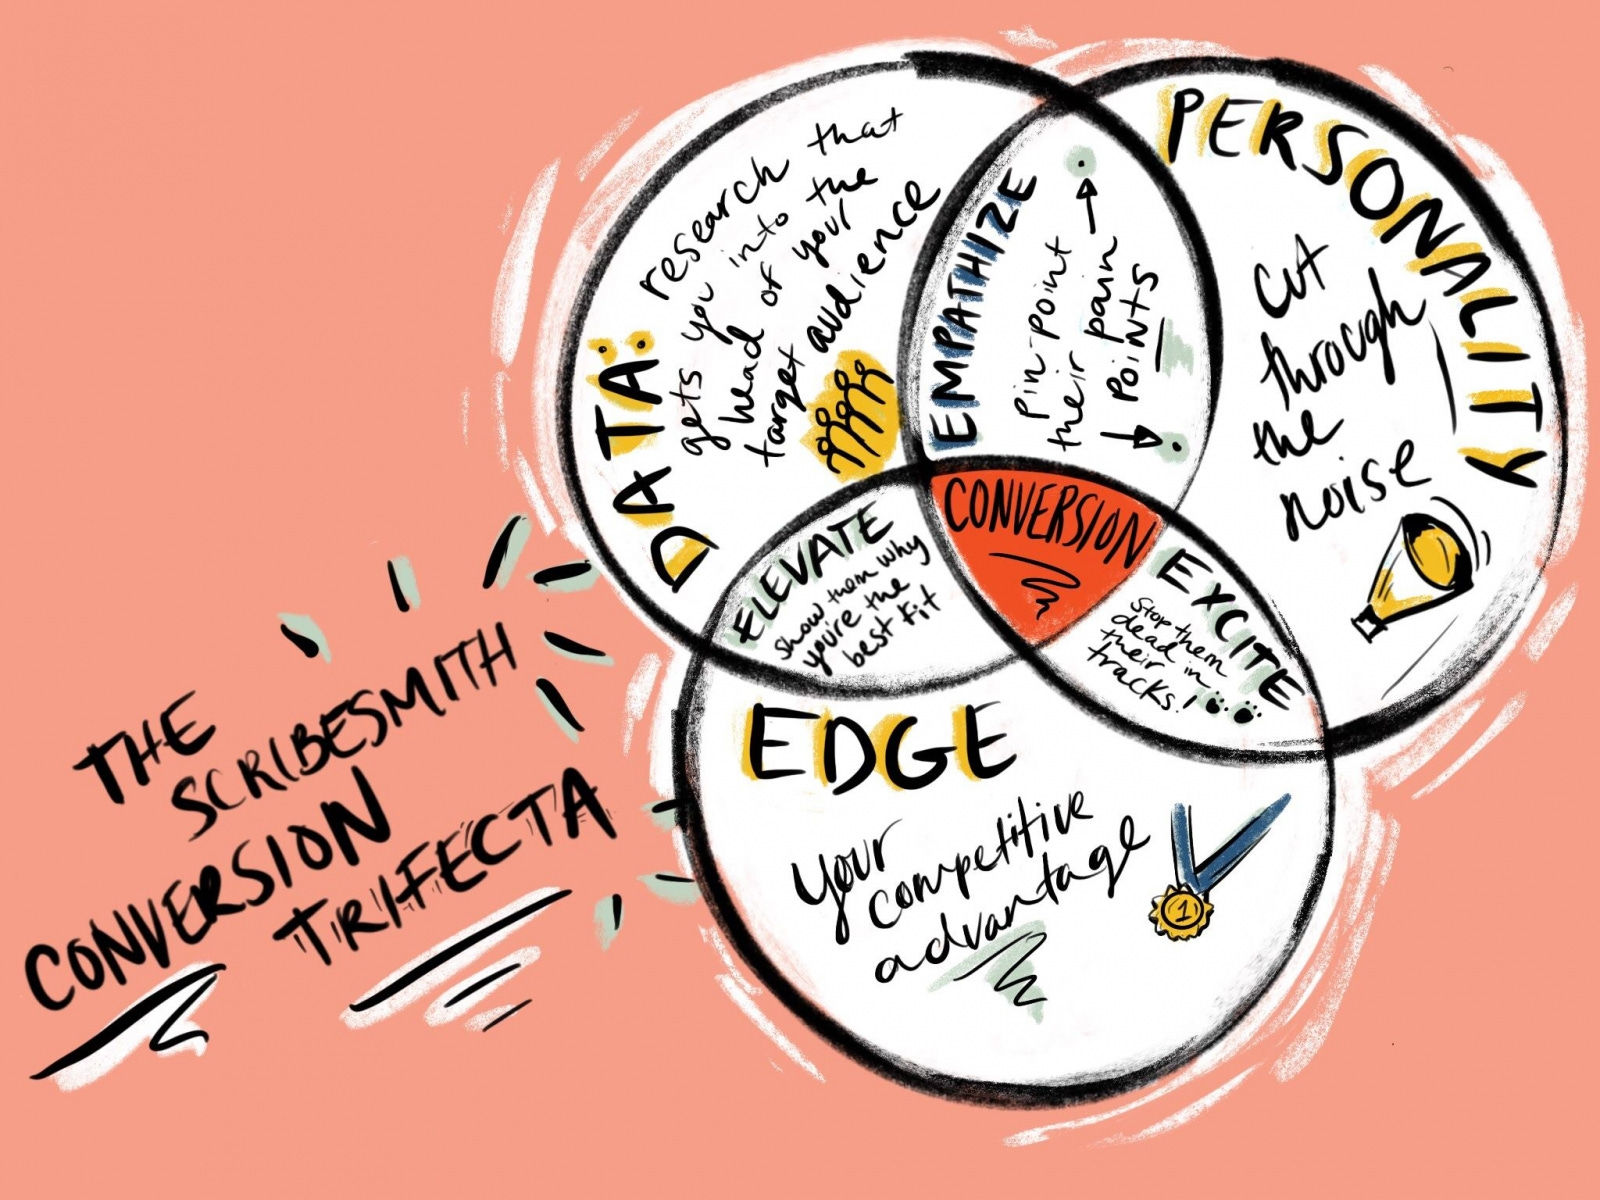 THE
SCRIBESMITH
CONVERSION
TRIFECTA
DATA:
research that
gets you into the
head of your
target audience
EMPATHIZE
pin-point
their pain
points
PERSONALITY
Cut
through
the
noise
CONVERSION
ELEVATE
show them why
you're the
best fit
EXCITE
Stop them
dead in
their
tracks!
EDGE
Your
competitive
advantage
1